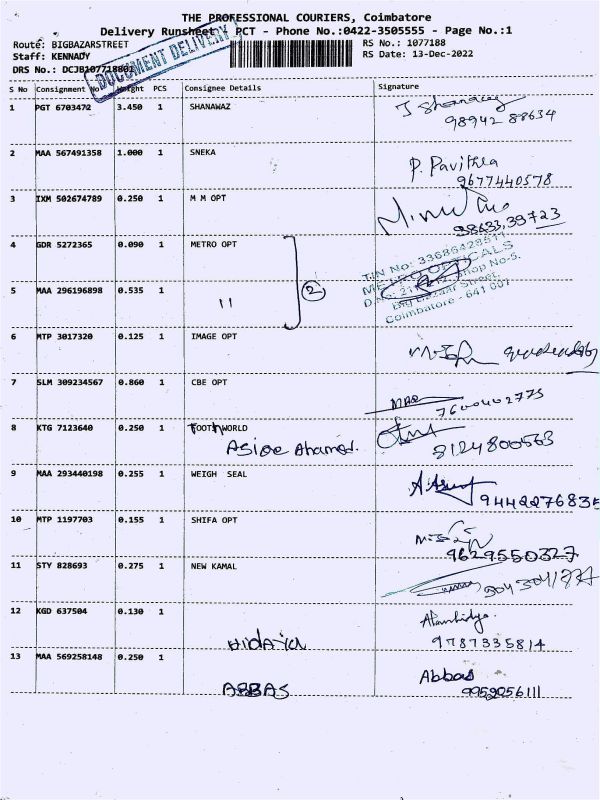 THE PROFESSIONAL COURIERS, Coimbatore
Delivery Runsheet - PCT - Phone No.:0422-3505555 - Page No.:1
Route: BIGBAZARSTREET RS No.: 1077188
Staff: KENNADY RS Date: 13-Dec-2022
DRS No.: DCJB107718801
DOCUMENT DELIVERY
S No Consignment No Weight PCS Consignee Details Signature
1 PGT 6703472 3.450 1 SHANAWAZ
98942 88634
2 MAA 567491358 1.000 1 SNEKA P. Pavithra
9677440578
3 IXM 502674789 0.250 1 M M OPT
98633,39723
4 GDR 5272365 0.090 1 METRO OPT
TIN No: 33686428511
METRO OPTICALS
Shop No-5.
Big Bazaar Street,
Coimbatore - 641 001
5 MAA 296196898 0.535 1 " 2
6 MTP 3017320 0.125 1 IMAGE OPT
7 SLM 309234567 0.860 1 CBE OPT
7600402775
8 KTG 7123640 0.250 1 FOOTHWORLD
8124800563
9 MAA 293440198 0.255 1 WEIGH SEAL
9442276835
10 MTP 1197703 0.155 1 SHIFA OPT
9629550327
11 STY 828693 0.275 1 NEW KAMAL
12 KGD 637504 0.130 1
HIDAYA 9787335814
13 MAA 569258148 0.250 1 Abbas
ABBAS 9952056111